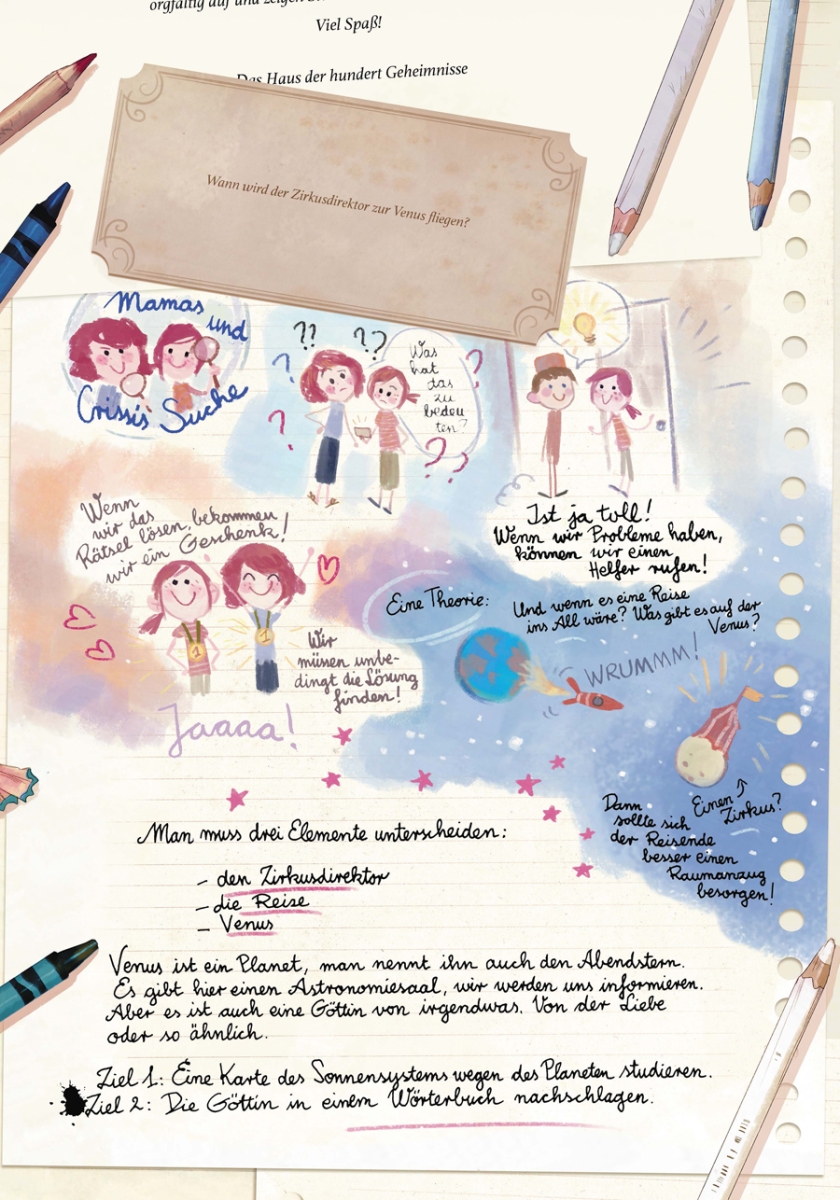 orgfältig auf und zeigen
Viel Spaß!
Das Haus der hundert Geheimnisse
Wann wird der Zirkusdirektor zur Venus fliegen?
Mamas
und
Crissis Suche
?? ??
? ?
? ??
Was
hat
das
zu
bedeu
ten?
Ist ja toll!
Wenn wir Probleme haben,
können wir einen
Helfer rufen!
Wenn
wir das
Rätsel lösen, bekommen
wir ein Geschenk!
1 1
Wir
müssen unbe-
dingt die Lösung
finden!
Jaaaa!
Eine Theorie:
Und wenn es eine Reise
ins All wäre? Was gibt es auf der
Venus?
WRUMMM!
Einen
Zirkus?
Dann
sollte sich
der Reisende
besser einen
Raumanzug
besorgen!
Man muss drei Elemente unterscheiden:
– den Zirkusdirektor
– die Reise
– Venus
Venus ist ein Planet, man nennt ihn auch den Abendstern.
Es gibt hier einen Astronomiesaal, wir werden uns informieren.
Aber es ist auch eine Göttin von irgendwas. Von der Liebe
oder so ähnlich.
Ziel 1: Eine Karte des Sonnensystems wegen des Planeten studieren.
Ziel 2: Die Göttin in einem Wörterbuch nachschlagen.